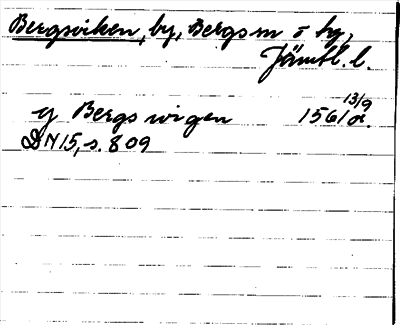 Bergsviken, by, Bergs sn o hg,
Jämtl. l.
y Bergs wigen 1561 13/9 or.
DN 15, s. 809